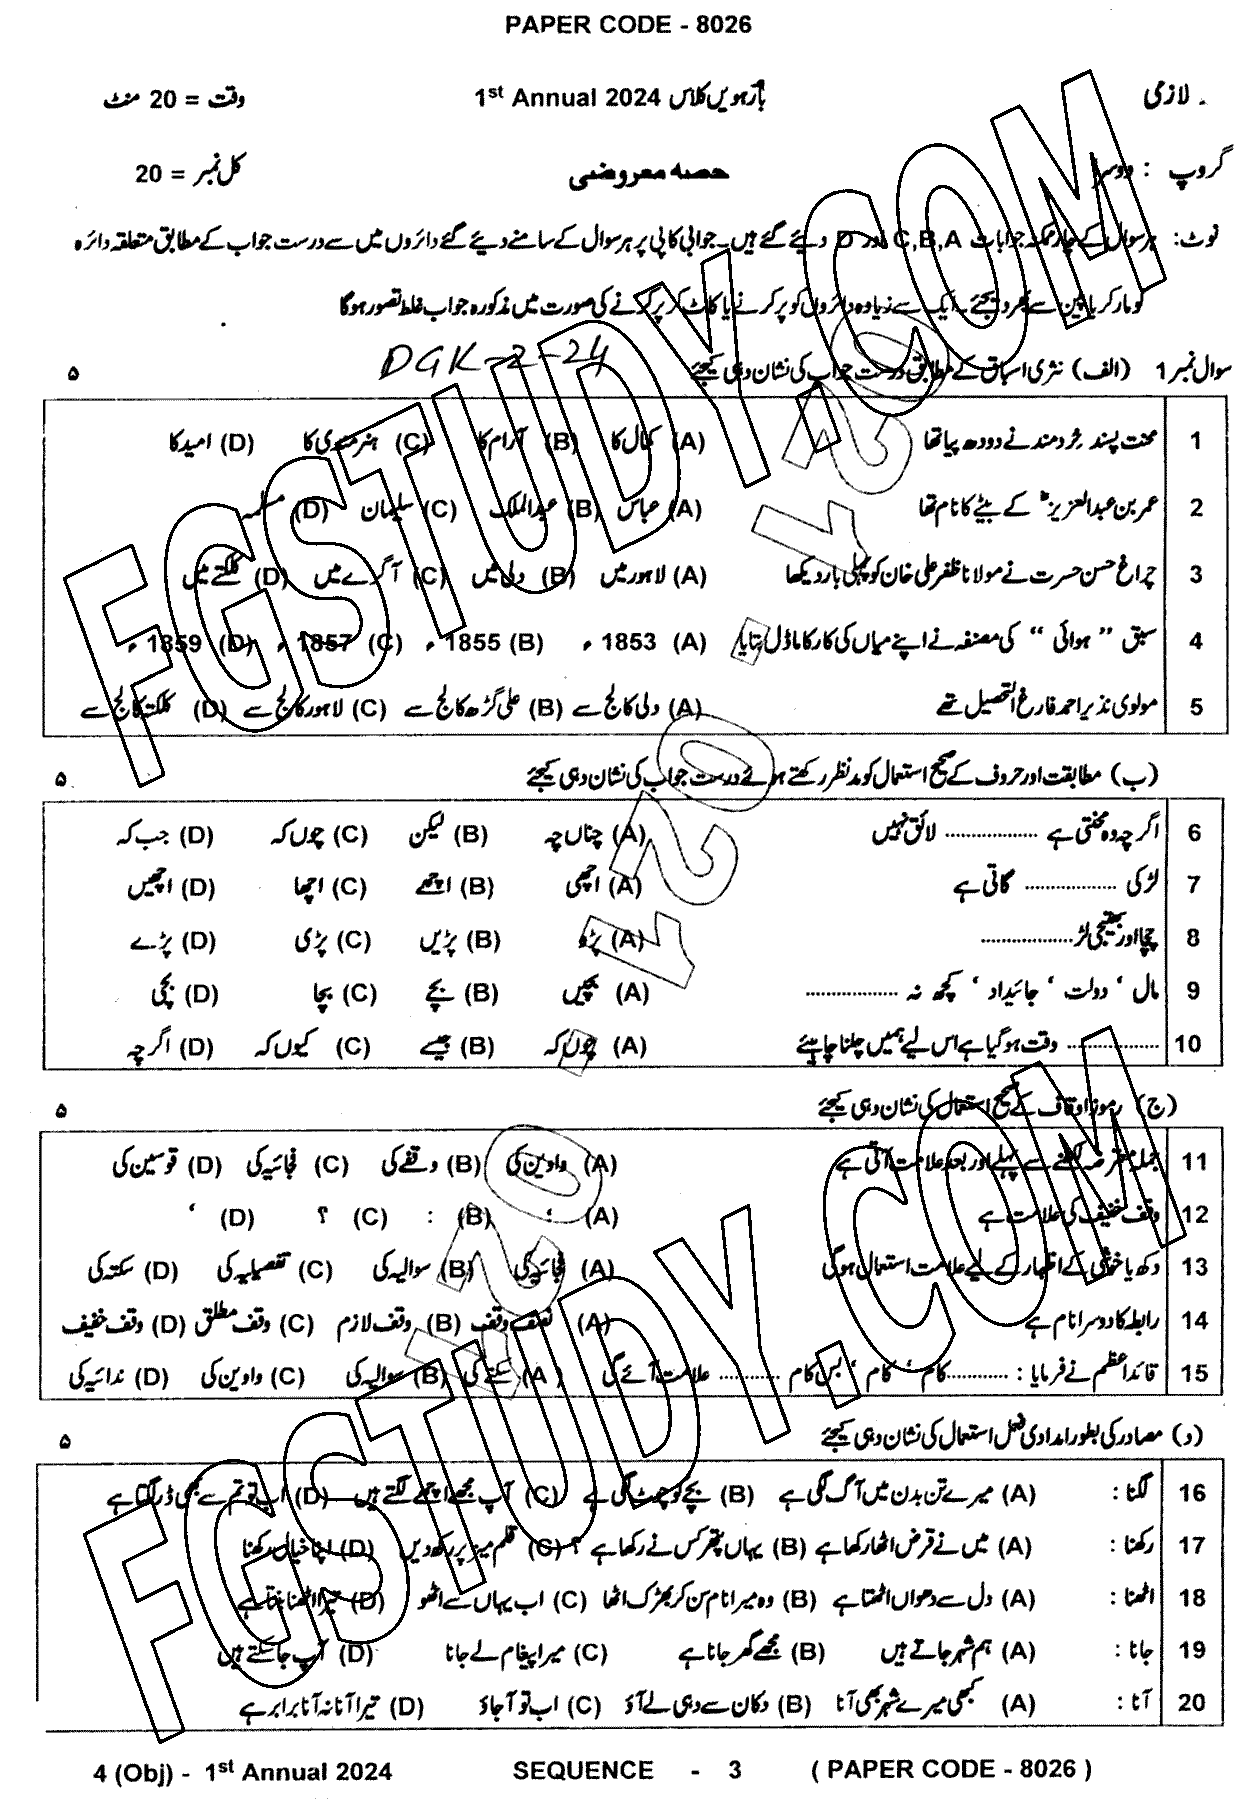 PAPER CODE - 8026
لازمی بارہویں کلاس 1st Annual 2024 وقت = 20 منٹ
گروپ : دوسرا حصہ معروضی کل نمبر = 20
نوٹ: ہر سوال کے چار ممکنہ جوابات C,B,A اور D دیئے گئے ہیں۔ جوابی کاپی پر ہر سوال کے سامنے دیئے گئے دائروں میں سے درست جواب کے مطابق متعلقہ دائرہ
کو مارکر یا پین سے بھر دیجئے۔ ایک سے زیادہ دائروں کو پر کرنے یا کاٹ کر پر کرنے کی صورت میں مذکورہ جواب غلط تصور ہوگا
DGK-2-24
سوال نمبر 1 (الف) نثری اسباق کے مطابق درست جواب کی نشان دہی کیجئے ۵
1 محنت پسند خردمند نے دودھ پیا تھا (A) کمال کا (B) آرام کا (C) ہنرمندی کا (D) امید کا
2 عمر بن عبدالعزیزؒ کے بیٹے کا نام تھا (A) عباس (B) عبدالملک (C) سلیمان (D) مسلمہ
3 چراغ حسن حسرت نے مولانا ظفر علی خان کو پہلی بار دیکھا (A) لاہور میں (B) دلی میں (C) آگرے میں (D) کلکتے میں
4 سبق “ ہوائی ” کی مصنفہ نے اپنے میاں کی کار کا ماڈل بتایا (A) 1853 ء (B) 1855 ء (C) 1857 ء (D) 1859 ء
5 مولوی نذیر احمد فارغ التحصیل تھے (A) دلی کالج سے (B) علی گڑھ کالج سے (C) لاہور کالج سے (D) کلکتہ کالج سے
(ب) مطابقت اور حروف کے صحیح استعمال کو مدنظر رکھتے ہوئے درست جواب کی نشان دہی کیجئے ۵
6 اگرچہ وہ محنتی ہے .................. لائق نہیں (A) چناں چہ (B) لیکن (C) چوں کہ (D) جب کہ
7 لڑکی .................. گاتی ہے (A) اچھی (B) اچھے (C) اچھا (D) اچھیں
8 چچا اور بھتیجی لڑ.................. (A) پڑو (B) پڑیں (C) پڑی (D) پڑے
9 مال ‘ دولت ‘ جائیداد ‘ کچھ نہ .................. (A) بچیں (B) بچے (C) بچا (D) بچی
10 .................. وقت ہوگیا ہے اس لیے ہمیں چلنا چاہیئے (A) چوں کہ (B) جیسے (C) کیوں کہ (D) اگرچہ
(ج) رموز اوقاف کے صحیح استعمال کی نشان دہی کیجئے ۵
11 جملہ معترضہ لکھنے سے پہلے اور بعد علامت آتی ہے (A) واوین کی (B) وقفے کی (C) فجائیہ کی (D) قوسین کی
12 وقف خفیف کی علامت ہے (A) ؛ (B) : (C) ؟ (D) ‘
13 دکھ یا خوشی کے اظہار کے لیے علامت استعمال ہوگی (A) فجائیہ کی (B) سوالیہ کی (C) تفصیلیہ کی (D) سکتہ کی
14 رابطہ کا دوسرا نام ہے (A) نصف وقف (B) وقف لازم (C) وقف مطلق (D) وقف خفیف
15 قائداعظم نے فرمایا : ............کام ‘ کام ‘ بس کام ............ علامت آئے گی (A) سکتے کی (B) سوالیہ کی (C) واوین کی (D) ندائیہ کی
(د) مصادر کی بطور امدادی فعل استعمال کی نشان دہی کیجئے ۵
16 لگنا : (A) میرے تن بدن میں آگ لگی ہے (B) بچے کو چوٹ لگی ہے (C) آپ مجھے اچھے لگتے ہیں (D) اب تو تم سے بھی ڈر لگتا ہے
17 رکھنا : (A) میں نے قرض اٹھا رکھا ہے (B) یہاں پتھر کس نے رکھا ہے ؟ (C) قلم میز پر رکھ دیں (D) اپنا خیال رکھنا
18 اٹھنا : (A) دل سے دھواں اٹھتا ہے (B) وہ میرا نام سن کر بھڑک اٹھا (C) اب یہاں سے اٹھو (D) تیرا اٹھنا بنتا ہے
19 جانا : (A) ہم شہر جاتے ہیں (B) مجھے گھر جانا ہے (C) میرا پیغام لے جانا (D) آپ جا سکتے ہیں
20 آنا : (A) کبھی میرے شہر بھی آنا (B) دکان سے دہی لے آؤ (C) اب تو آجاؤ (D) تیرا آنا نہ آنا برابر ہے
4 (Obj) - 1st Annual 2024 SEQUENCE - 3 ( PAPER CODE - 8026 )
FGSTUDY.COM
FGSTUDY.COM